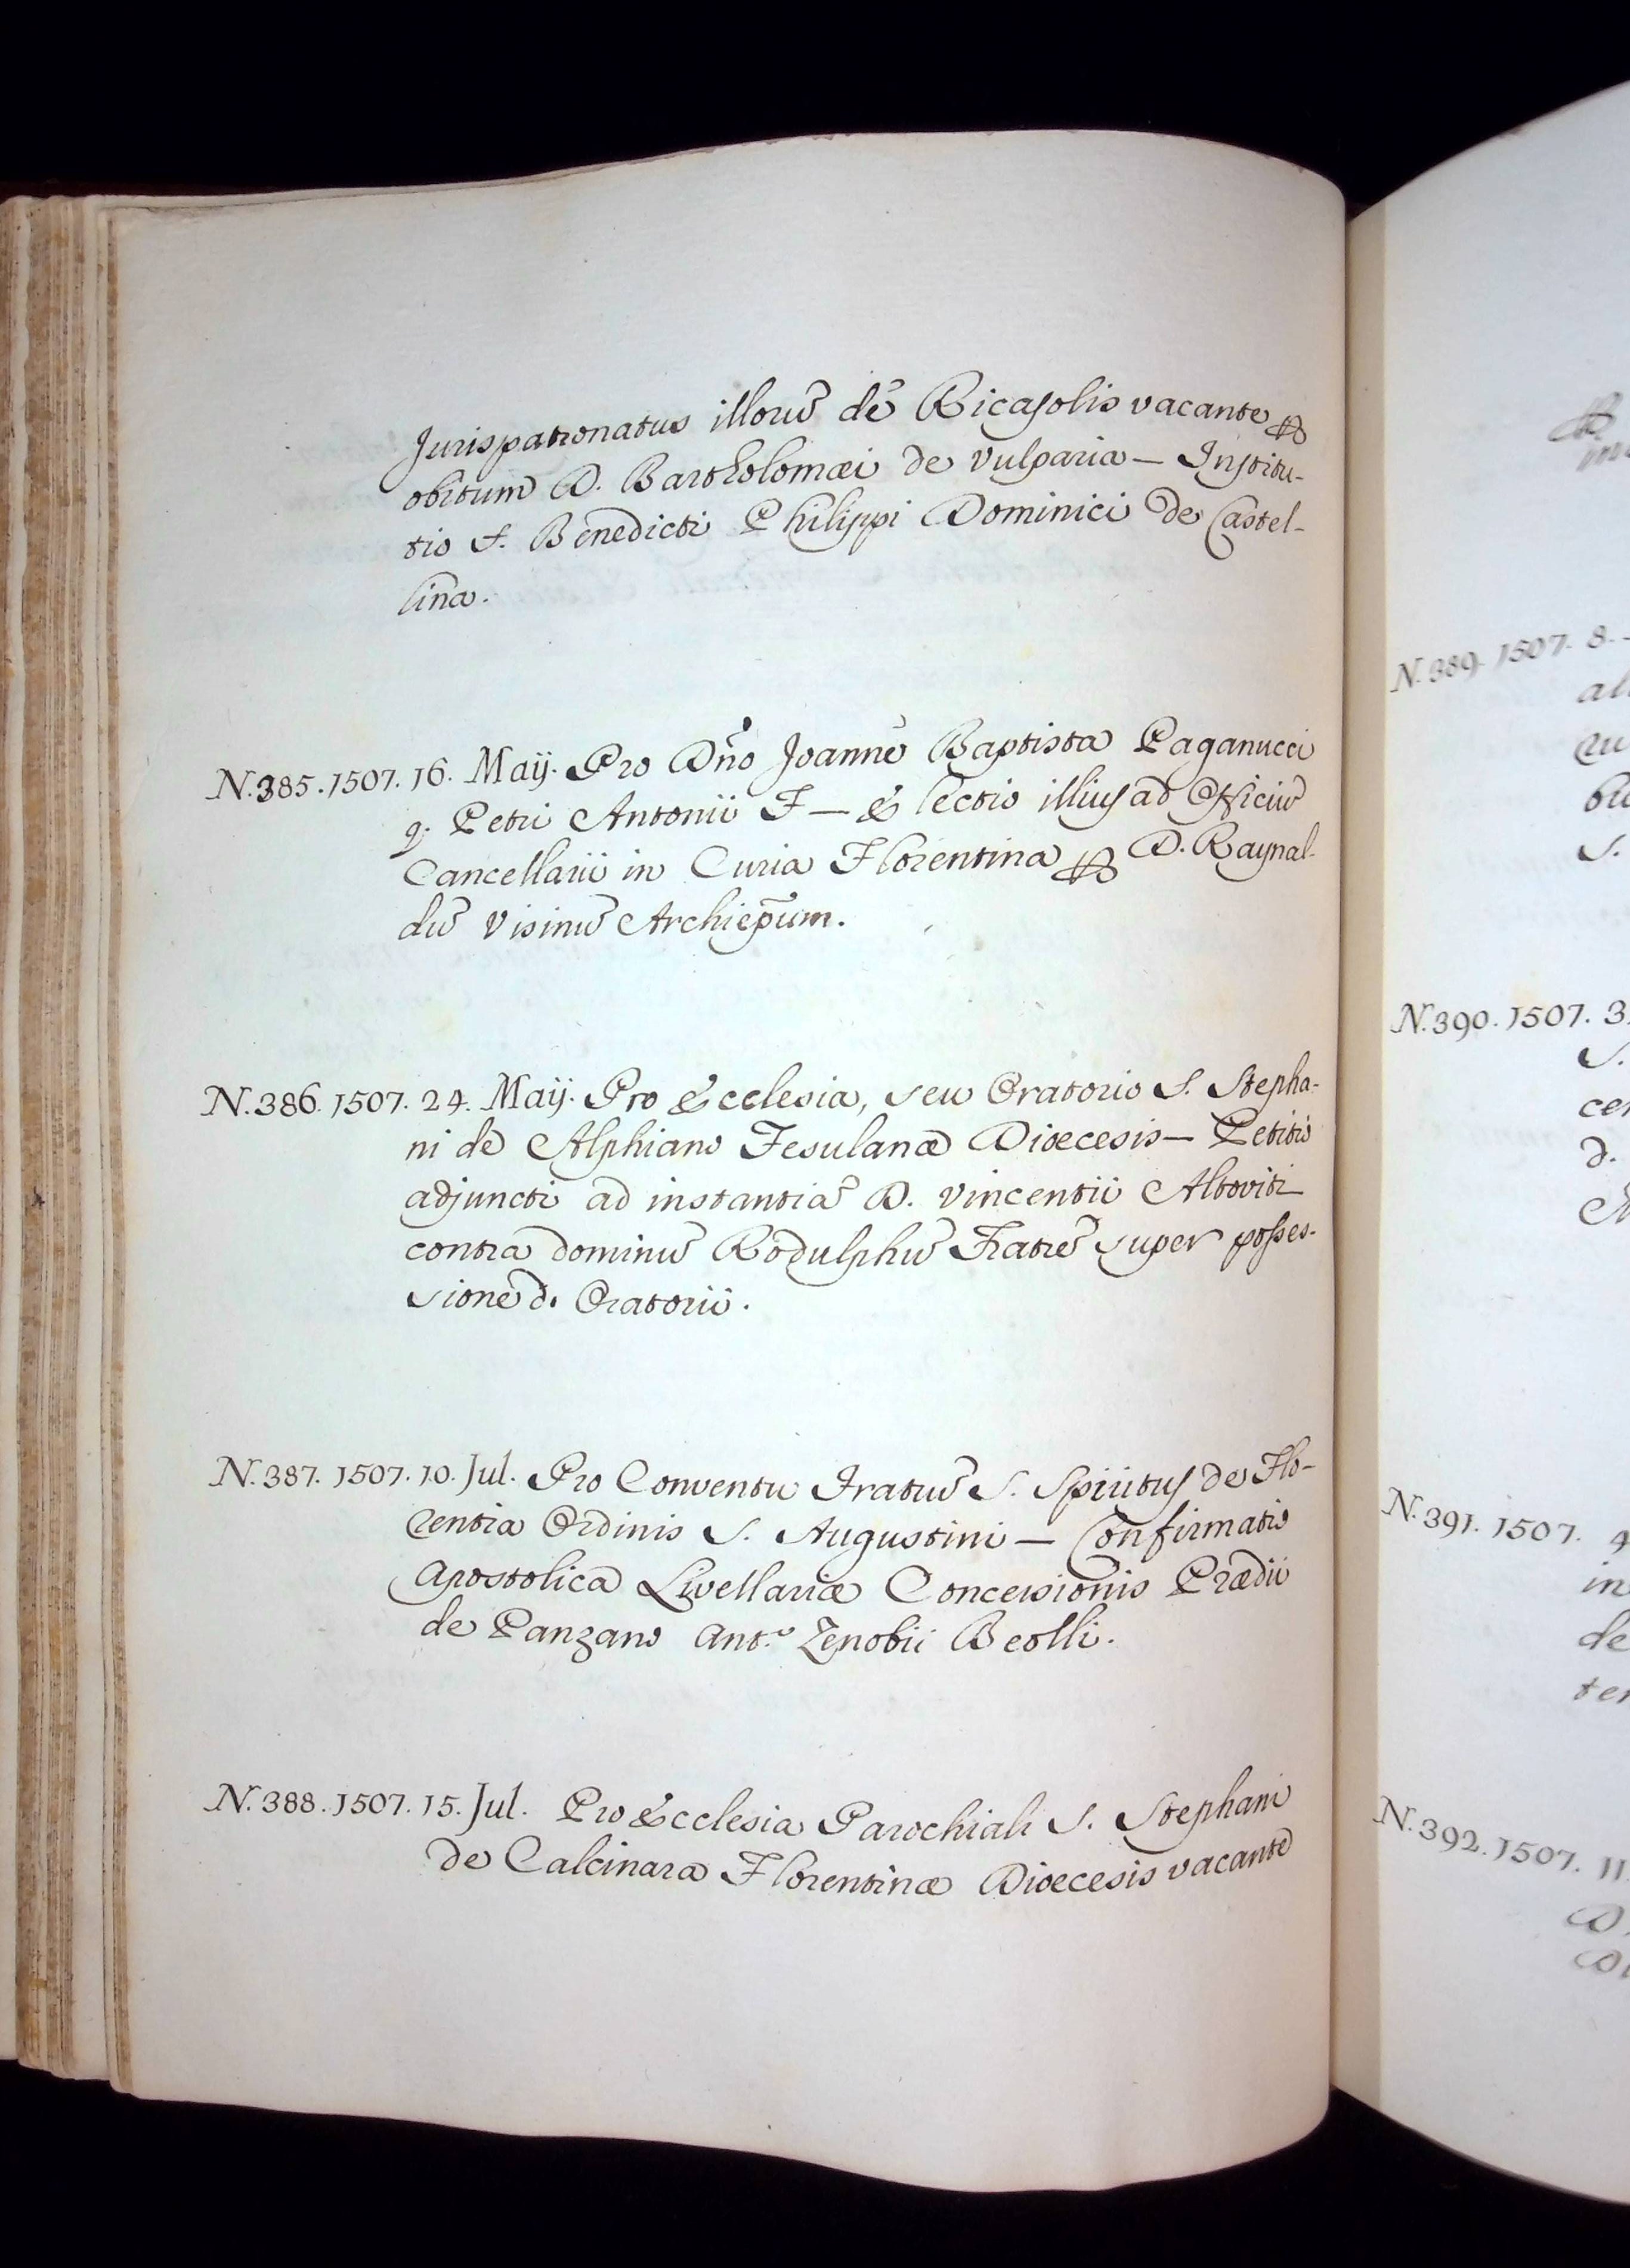 Jurispatronatus illorū de Ricasolis vacante ꝑ
obitum D. Bartholomæi de Vulparia — Institu-
tio S. Benedicti Philippi Dominici de Castel-
lina.
N. 385. 1507. 16. Maij. Pro Dño Joanne Baptista Paganucci
q. Petri Antonii F — Electio illius ad Officiū
Cancellarii in Curia Florentina ꝑ D. Raynal-
dū Visinū Archiep̃um.
N. 386. 1507. 24. Maij. Pro Ecclesia, seu Oratorio S. Stepha-
ni de Alphiano Fesulanæ Diœcesis — Petitio
adjuncti ad instantiā D. Vincentii Altoviti
contra dominū Rodulphū Fratrē super posses-
sionē d. Oratorii.
N. 387. 1507. 10. Jul. Pro Conventu Fratrū S. Spiritus de Flo-
rentia Ordinis S. Augustini — Confirmatio
Apostolica Livellariæ Concessionis Prædii
de Panzano Ant.º Zenobii Beolli.
N. 388. 1507. 15. Jul. Pro Ecclesia Parochiali S. Stephani
de Calcinara Florentinæ Diœcesis vacante
N. 389. 1507. 8.
N. 390. 1507. 3
N. 391. 1507.
N. 392. 1507. 11.